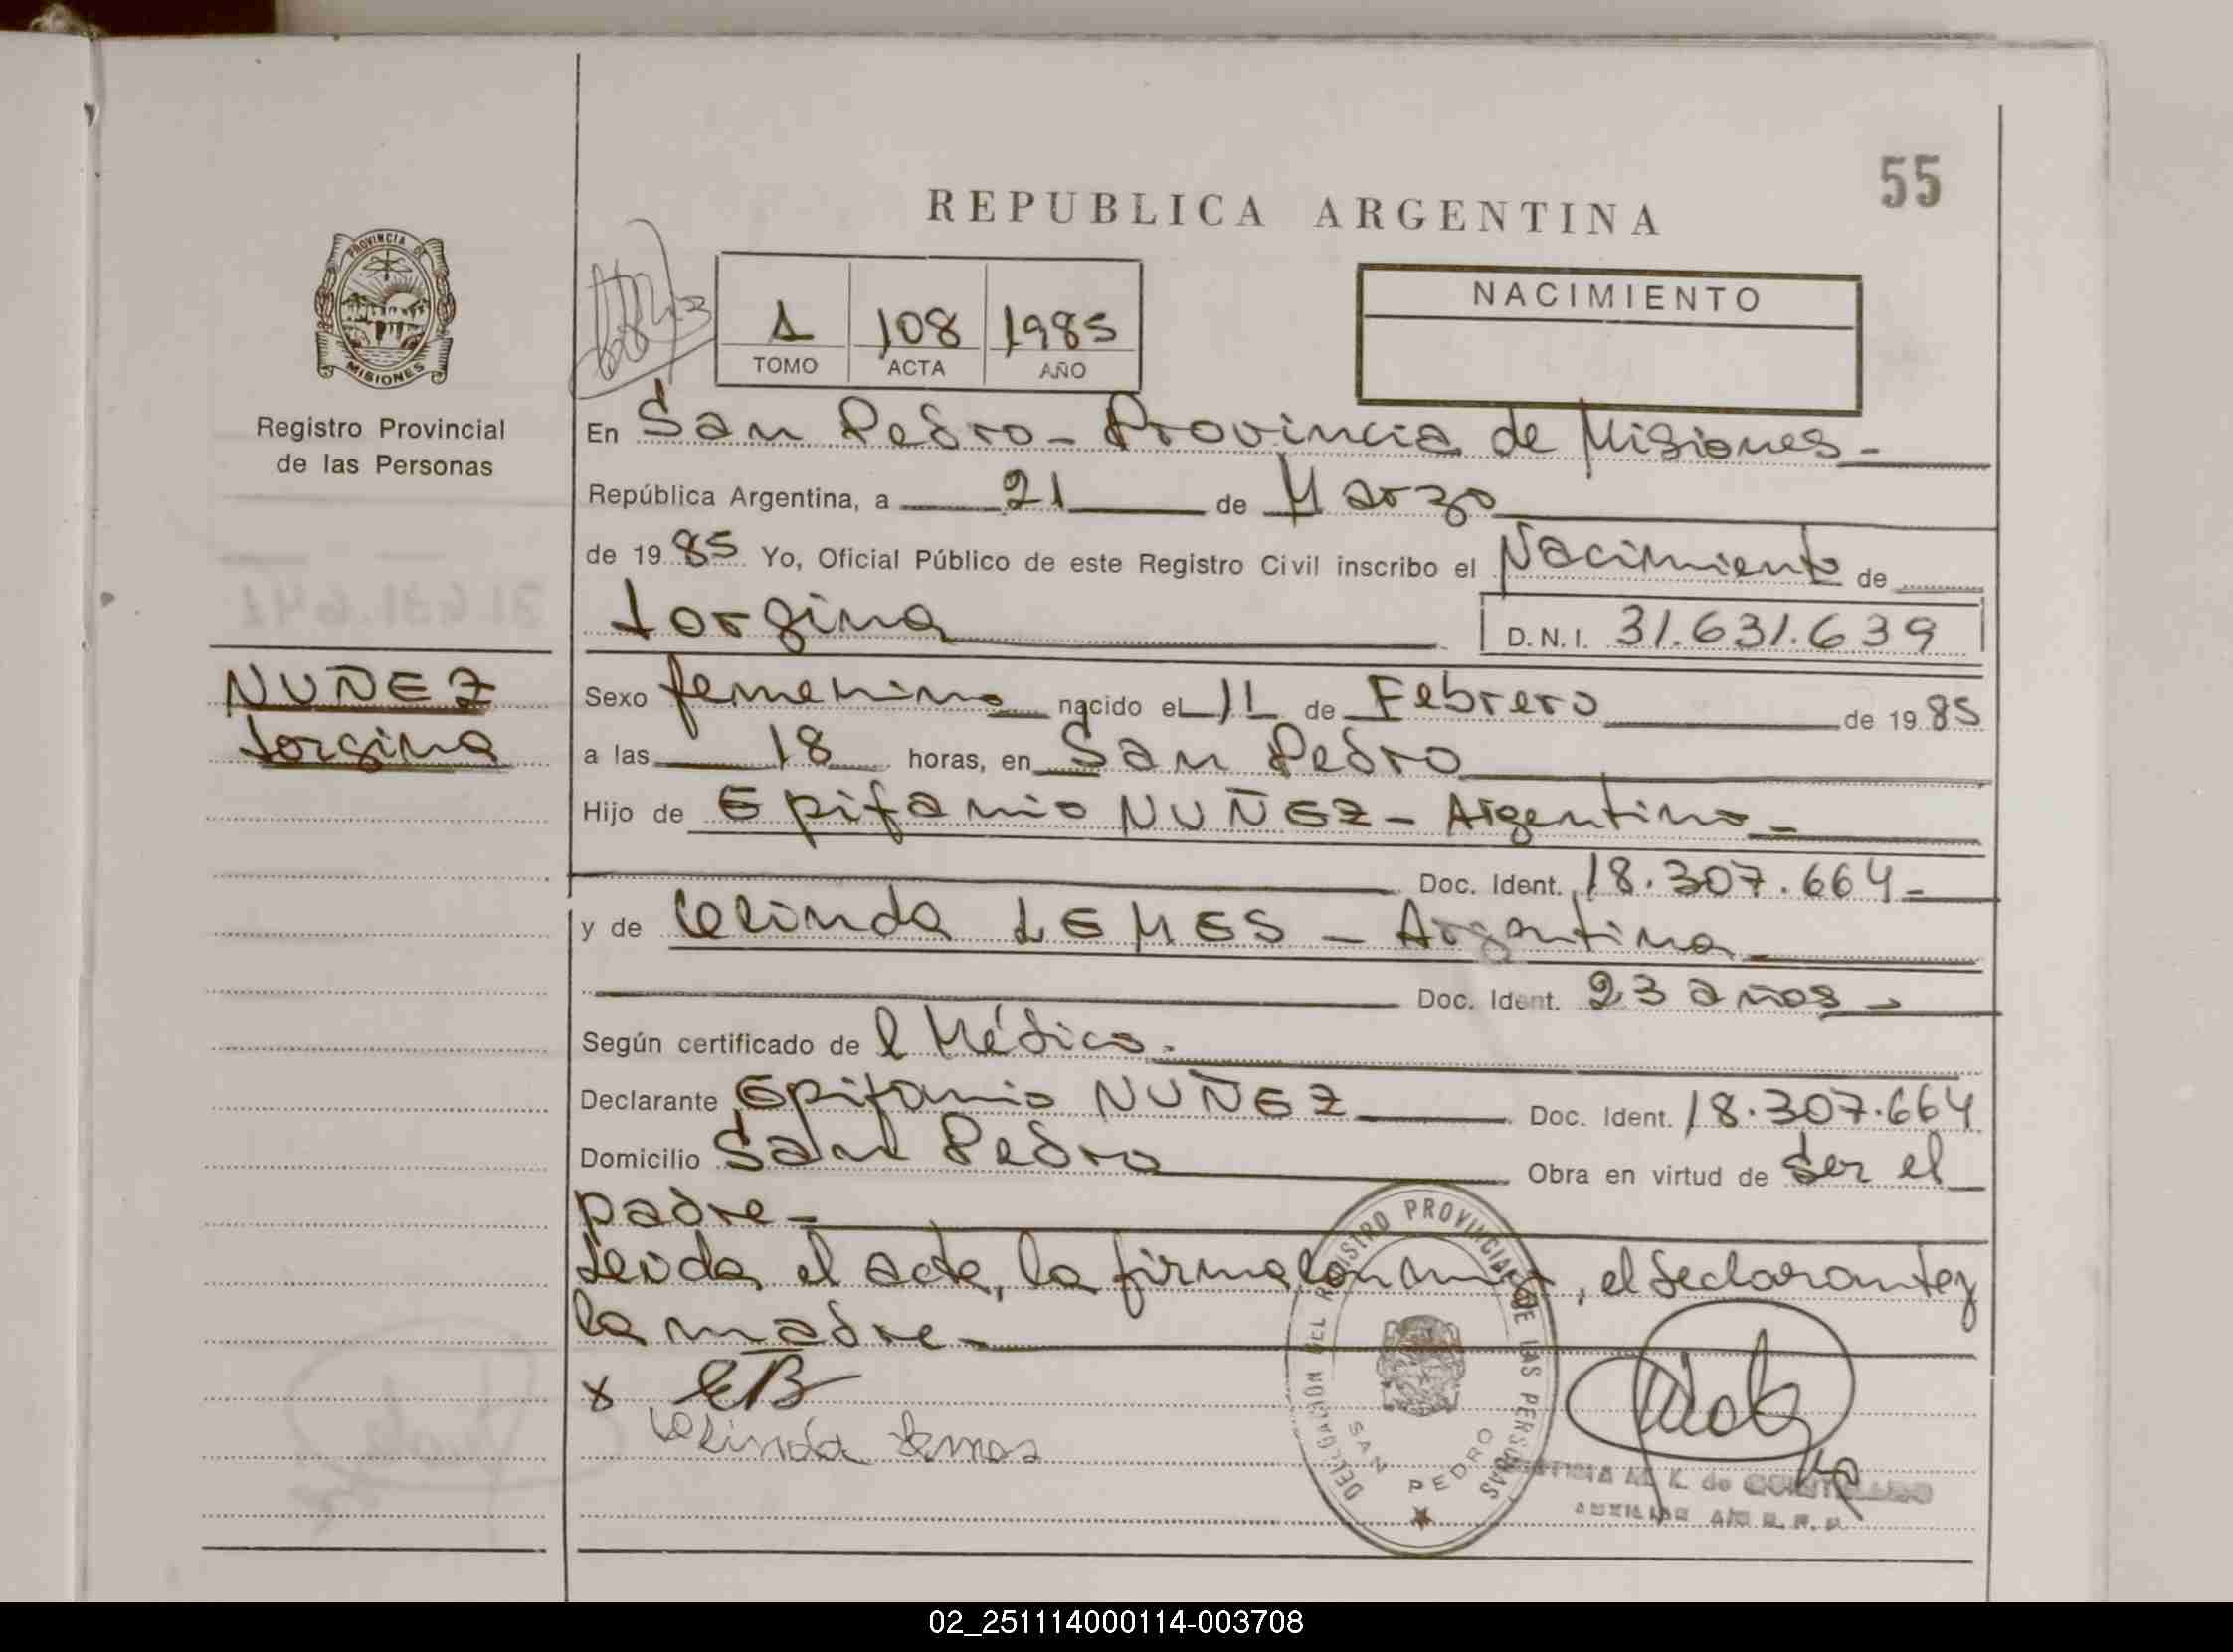 55
REPUBLICA ARGENTINA
PROVINCIA DE
MISIONES
Registro Provincial
de las Personas
1 108 1985
TOMO ACTA AÑO
NACIMIENTO
En San Pedro - Provincia de Misiones -
República Argentina, a 21 de Marzo
de 1985 Yo, Oficial Público de este Registro Civil inscribo el Nacimiento de
Jorgina D.N.I. 31.631.639
NUÑEZ
Jorgina
Sexo femenino nacido el 11 de Febrero de 1985
a las 18 horas, en San Pedro
Hijo de Epifanio NUÑEZ - Argentino -
Doc. Ident. 18.307.664 -
y de Celinda LEMES - Argentina
Doc. Ident. 23 años -
Según certificado del Médico.
Declarante Epifanio NUÑEZ Doc. Ident. 18.307.664
Domicilio San Pedro Obra en virtud de ser el
padre -
Leida el acta, la firma con migo, el declarante y
la madre -
x
Celinda
DELEGACIÓN DEL REGISTRO PROVINCIAL DE LAS PERSONAS
SAN PEDRO
M. K. de
02_251114000114-003708